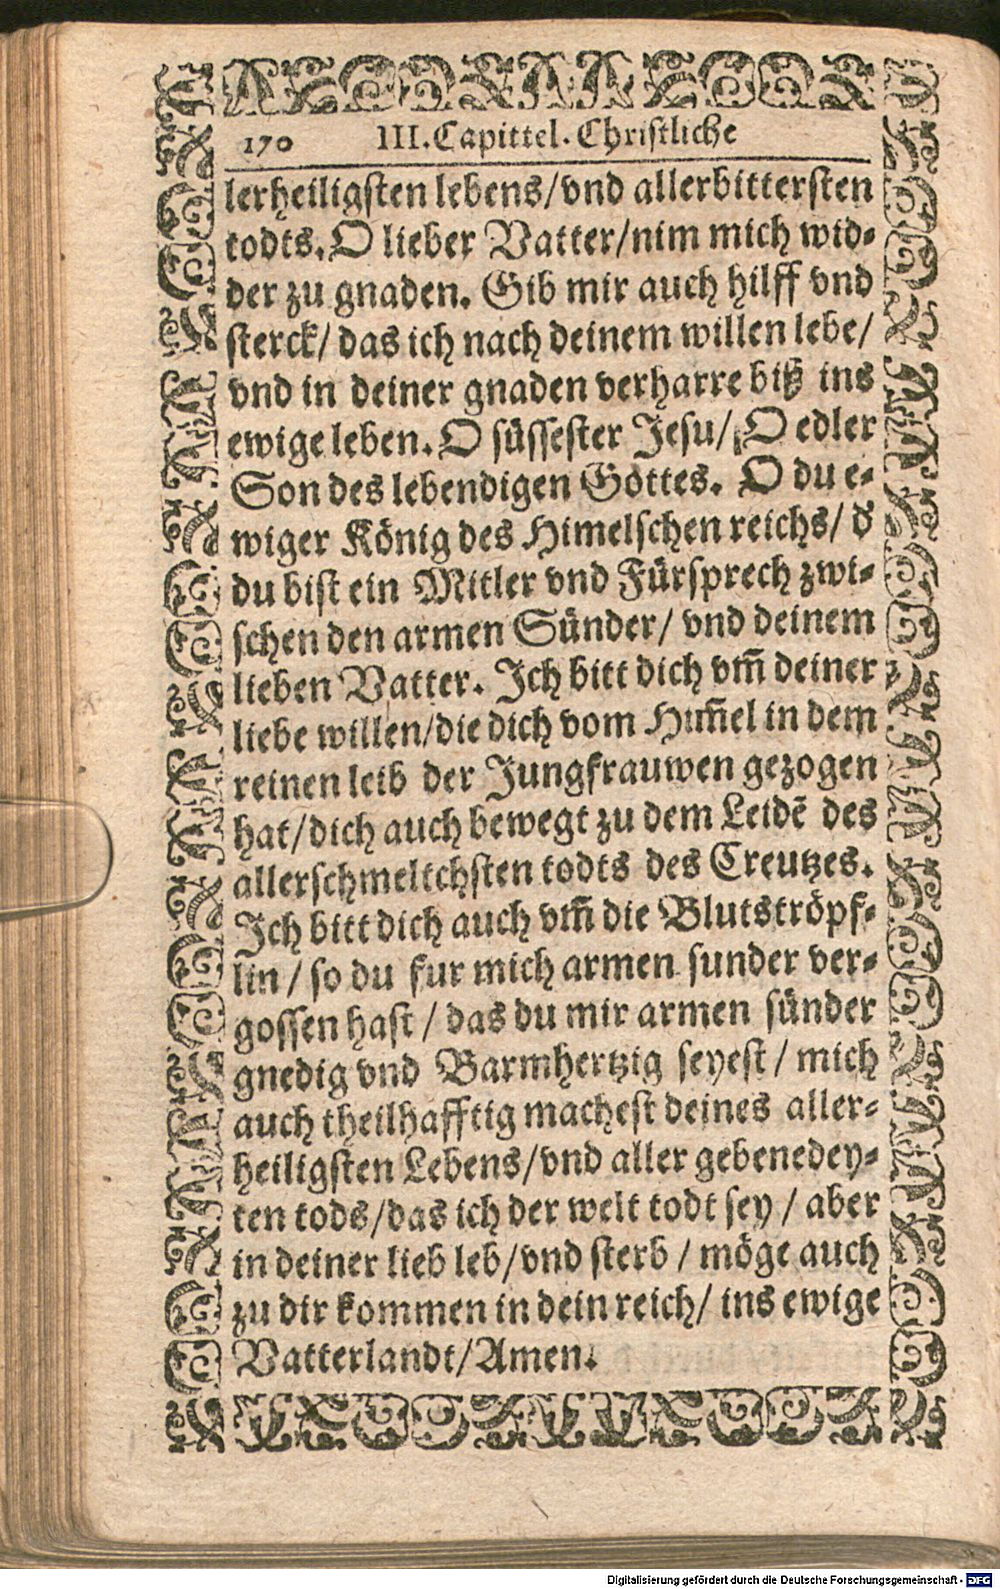 170 III. Capittel. Christliche
lerheiligsten lebens/vnd allerbittersten
todts. O lieber Vatter/nim mich wid-
der zu gnaden. Gib mir auch hilff vnd
sterck/ das ich nach deinem willen lebe/
vnd in deiner gnaden verharre biß ins
ewige leben. O süssester Jesu/ O edler
Son des lebendigen Gottes. O du e-
wiger König des Himelschen reichs/ d̕
du bist ein Mitler vnd Fürsprech zwi-
schen den armen Sünder/ vnd deinem
lieben Vatter. Ich bitt dich vm̃ deiner
liebe willen/die dich vom Him̃el in dem
reinen leib der Jungfrauwen gezogen
hat/dich auch bewegt zu dem Leidẽ des
allerschmelichsten todts des Creutzes.
Ich bitt dich auch vm̃ die Blutströpf-
lin / so du fur mich armen sunder ver-
gossen hast / das du mir armen sünder
gnedig vnd Barmhertzig seyest / mich
auch theilhafftig machest deines aller-
heiligsten Lebens/vnd aller gebenedey-
ten tods/das ich der welt todt sey / aber
in deiner lieb leb/vnd sterb / möge auch
zu dir kommen in dein reich/ ins ewige
Vatterlandt/Amen.
Digitalisierung gefördert durch die Deutsche Forschungsgemeinschaft - DFG